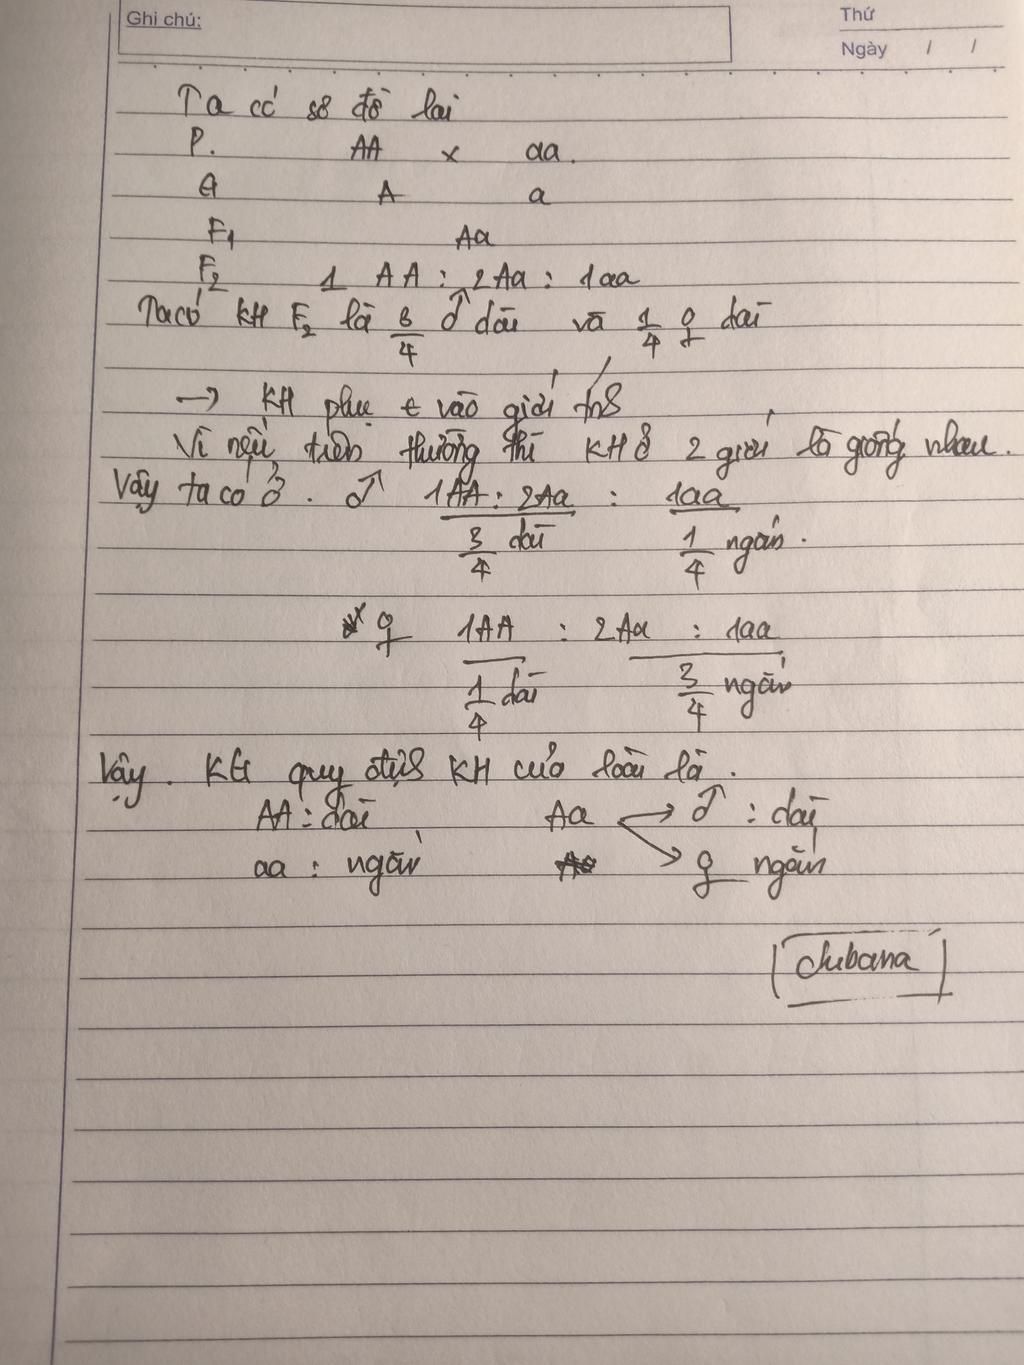 Ghi chú:
Thứ
Ngày / /
Ta có sơ đồ lai
P. AA x aa.
G A a
F1 Aa
F2 1 AA : 2Aa : 1aa
Ta có KH F2 là 3/4 ♂ dài và 1/4 ♀ dài
→ KH phụ t vào giới tính
Vì nếu trên thường thì KH ở 2 giới là giống nhau.
Vậy ta có ở. ♂ 1AA : 2Aa : 1aa
3/4 dài 1/4 ngắn.
♀ 1AA : 2Aa : 1aa
1/4 dài 3/4 ngắn
Vậy. KG quy định KH của loài là.
AA : dài Aa → ♂ : dài
aa : ngắn → ♀ ngắn
chubana